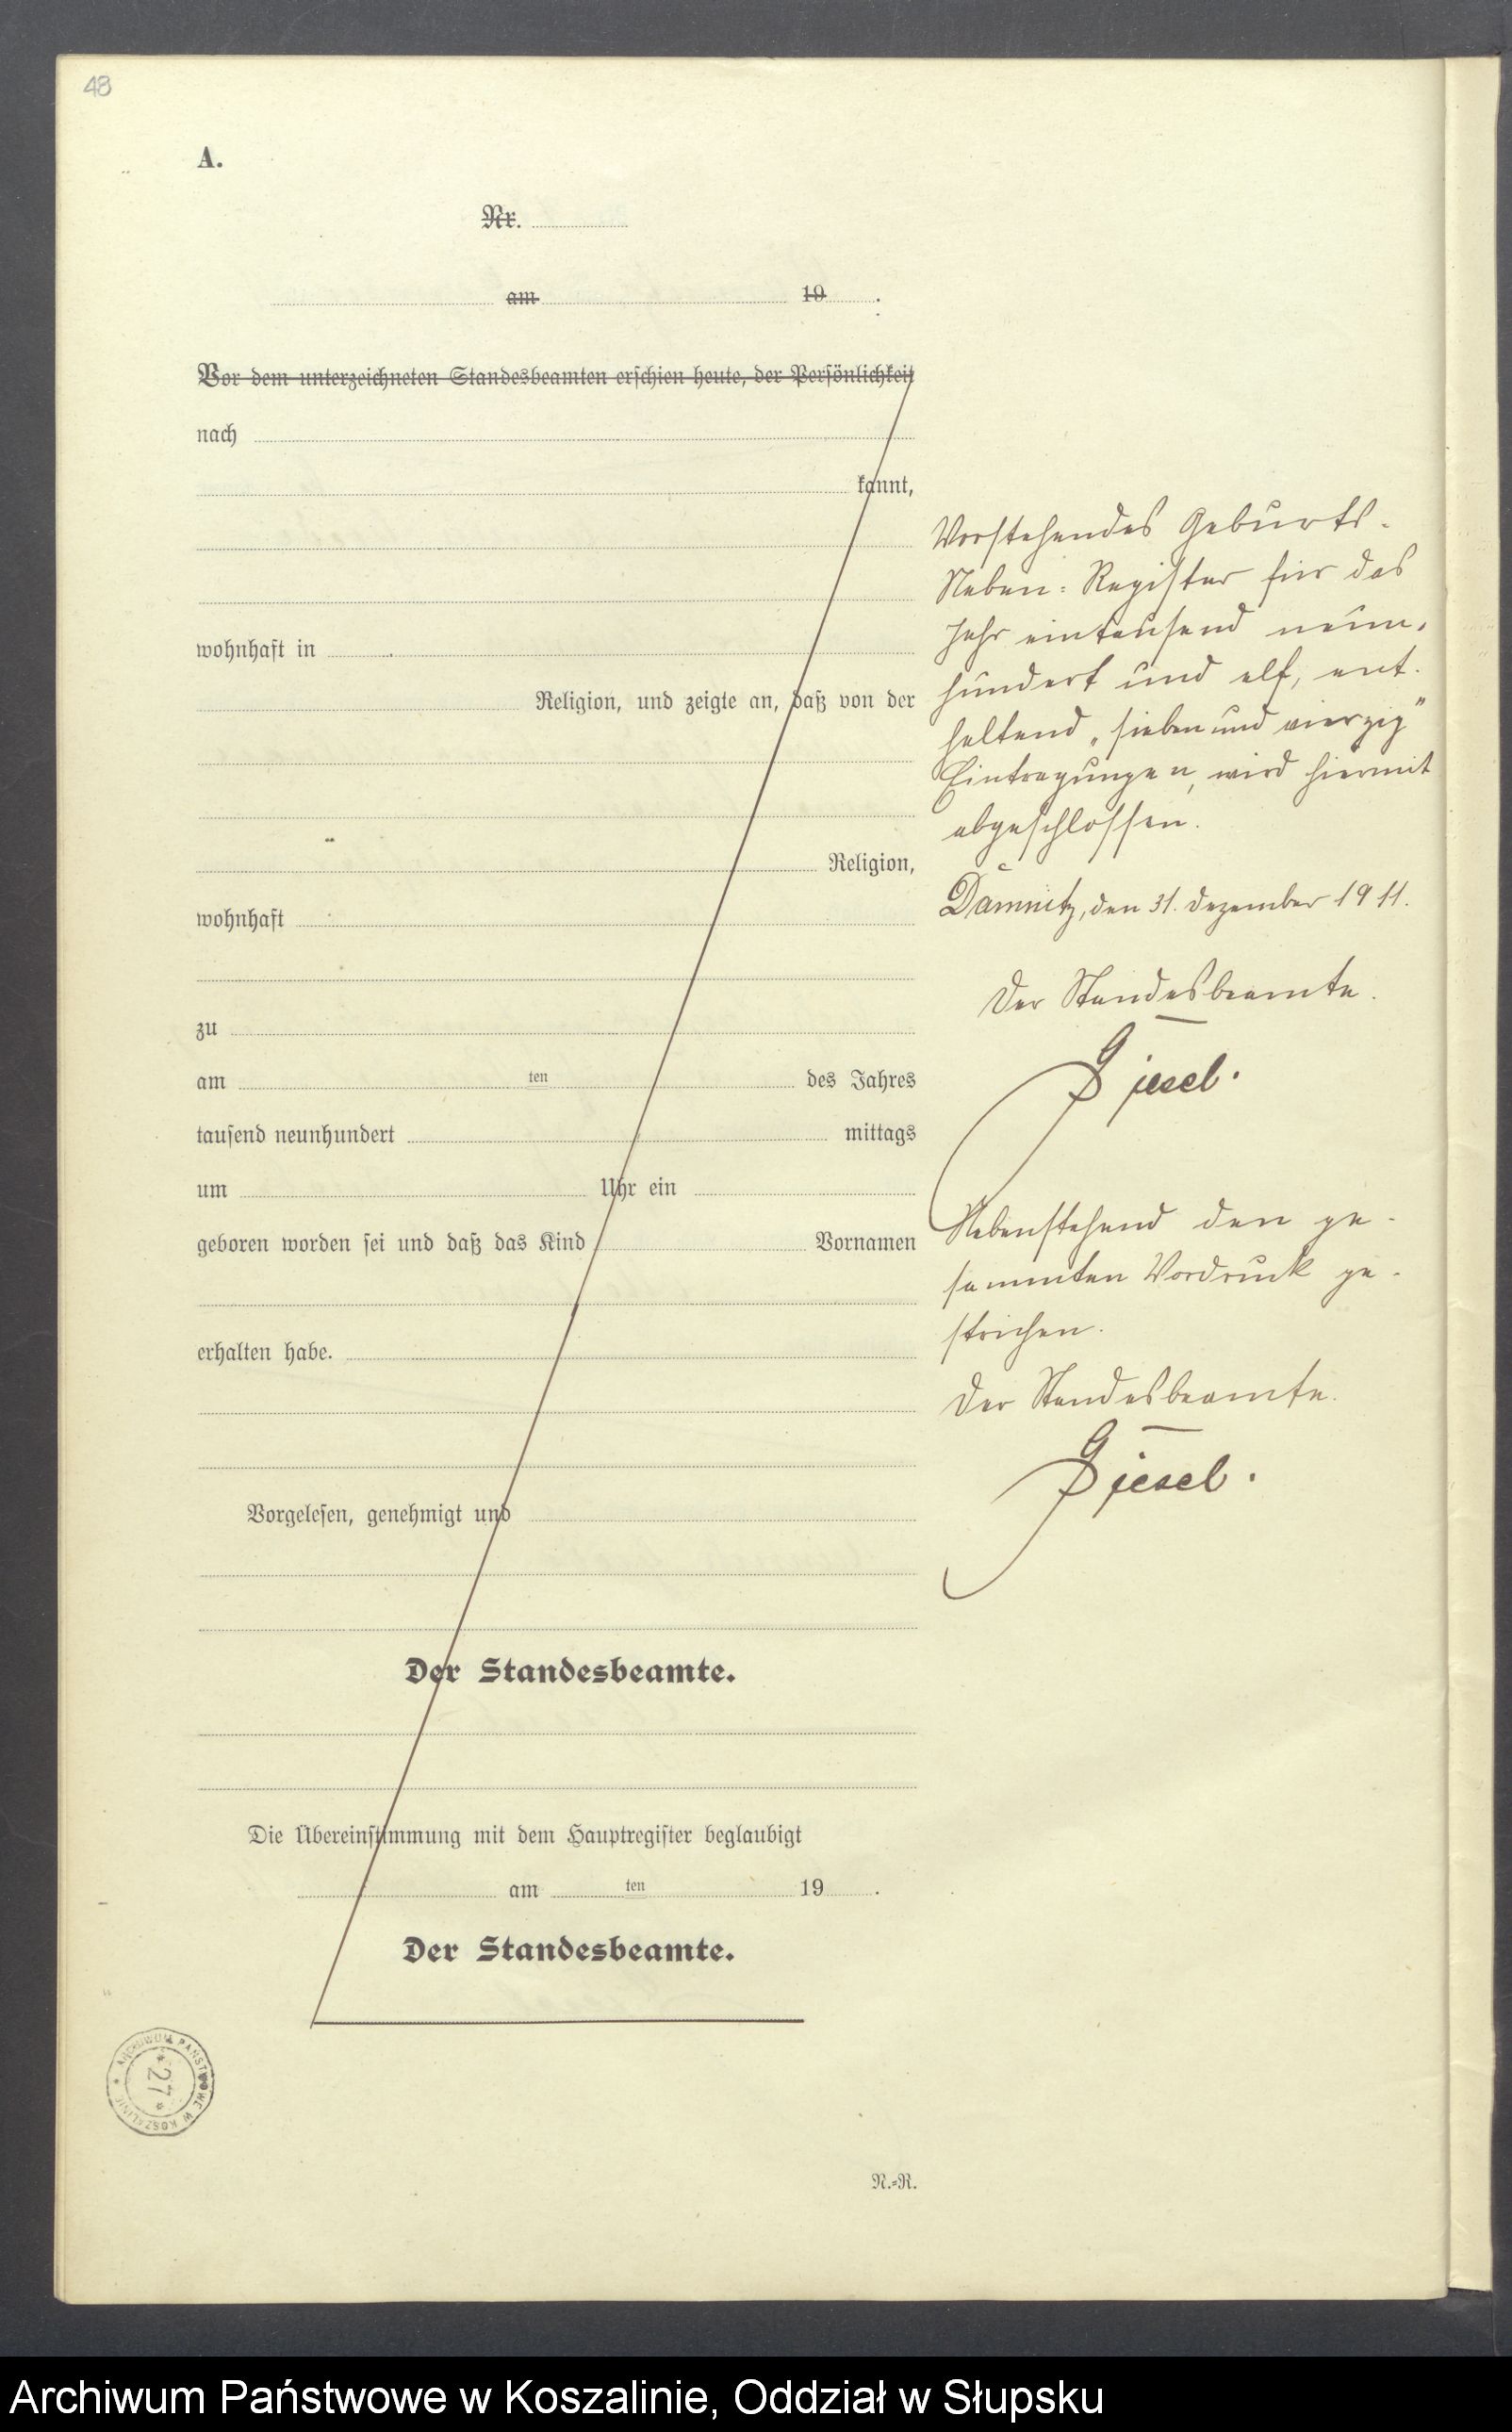 48
A.
Nr.
am 19 .
Vor dem unterzeichneten Standesbeamten erschien heute, der Persönlichkeit
nach
kannt,
wohnhaft in
Religion, und zeigte an, daß von der
Religion,
wohnhaft
zu
am ten des Jahres
tausend neunhundert mittags
um Uhr ein
geboren worden sei und daß das Kind Vornamen
erhalten habe.
Vorgelesen, genehmigt und
Der Standesbeamte.
Die Übereinstimmung mit dem Hauptregister beglaubigt
am ten 19 .
Der Standesbeamte.
N.=R.
Vorstehendes Geburts-
Neben-Register für das
Jahr eintausend neun-
hundert und elf, ent-
haltend „sieben und vierzig"
Eintragungen, wird hiermit
abgeschlossen.
Damnitz, den 31. Dezember 1911.
Der Standesbeamte.
Giesel.
Nebenstehend den ge-
sammten Vordruck ge-
strichen.
Der Standesbeamte.
Giesel.
ARCHIWUM PAŃSTWOWE W KOSZALINIE
* 27 *
Archiwum Państwowe w Koszalinie, Oddział w Słupsku